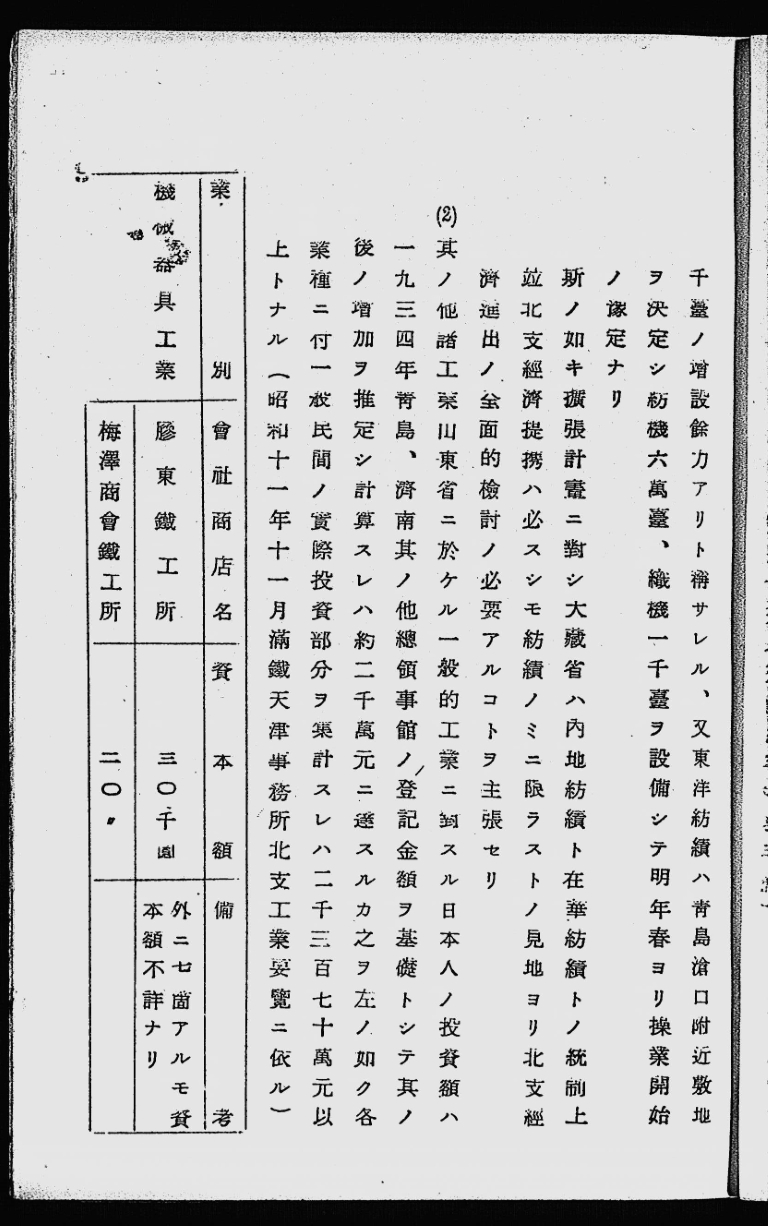 千臺ノ增設餘力アリト稱サレル、又東洋紡績ハ靑島滄口附近敷地
ヲ決定シ紡機六萬臺、織機一千臺ヲ設備シテ明年春ヨリ操業開始
ノ豫定ナリ
斯ノ如キ擴張計畫ニ對シ大藏省ハ內地紡績ト在華紡績トノ統制上
竝北支經濟提携ハ必スシモ紡績ノミニ限ラストノ見地ヨリ北支經
濟進出ノ全面的檢討ノ必要アルコトヲ主張セリ
(2)其ノ他諸工業山東省ニ於ケル一般的工業ニ對スル日本人ノ投資額ハ
一九三四年靑島、濟南其ノ他總領事館ノ登記金額ヲ基礎トシテ其ノ
後ノ增加ヲ推定シ計算スレハ約二千萬元ニ達スルカ之ヲ左ノ如ク各
業種ニ付一般民間ノ實際投資部分ヲ集計スレハ二千三百七十萬元以
上トナル(昭和十一年十一月滿鐵天津事務所北支工業要覽ニ依ル)
業別 會社商店名 資本額 備考
機械器具工業 膠東鐵工所 三〇千圓 外ニ七箇アルモ資
本額不詳ナリ
梅澤商會鐵工所 二〇〃